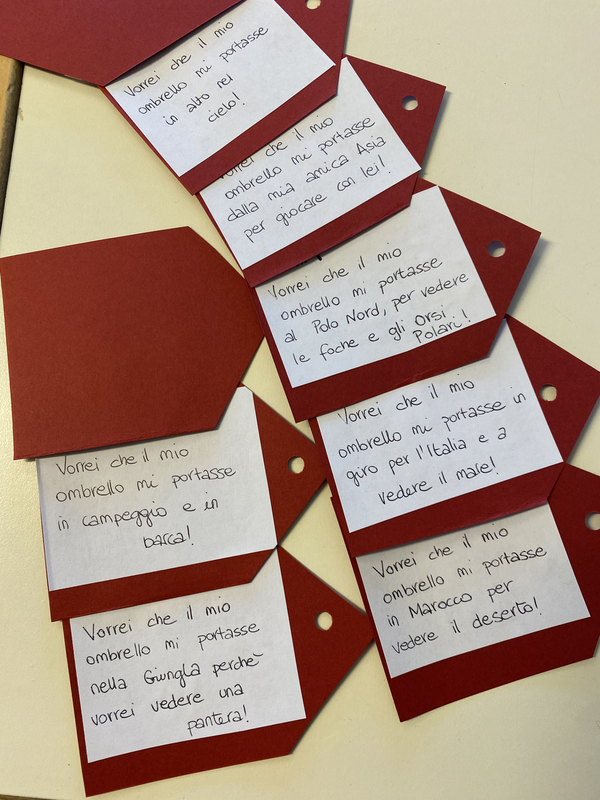 Vorrei che il mio
ombrello mi portasse
in alto nel
cielo!
Vorrei che il mio
ombrello mi portasse
dalla mia amica Asia
per giocare con lei!
Vorrei che il mio
ombrello mi portasse
al Polo Nord, per vedere
le foche e gli Orsi
Polari!
Vorrei che il mio
ombrello mi portasse in
giro per l'Italia e a
vedere il male!
Vorrei che il mio
ombrello mi portasse
in Marocco per
vedere il deserto!
Vorrei che il mio
ombrello mi portasse
in campeggio e in
barca!
Vorrei che il mio
ombrello mi portasse
nella Giungla perchè
vorrei vedere una
pantera!